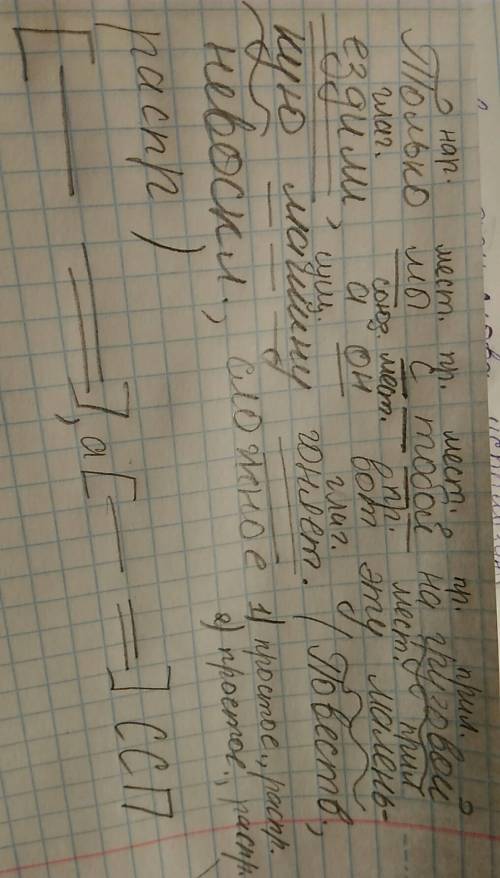 нар. мест. пр. мест. пр. прил.
Только мы с тобой на грузовой
глаг. союз. мест. пр. мест. прил
ездили, а он вот эту малень-
сущ. глаг.
кую машину гоняет. (Повеств.,
невоскл., сложное 1) простое., распр.
2) простое., распр.
распр)
[— =], а [— =] ССП